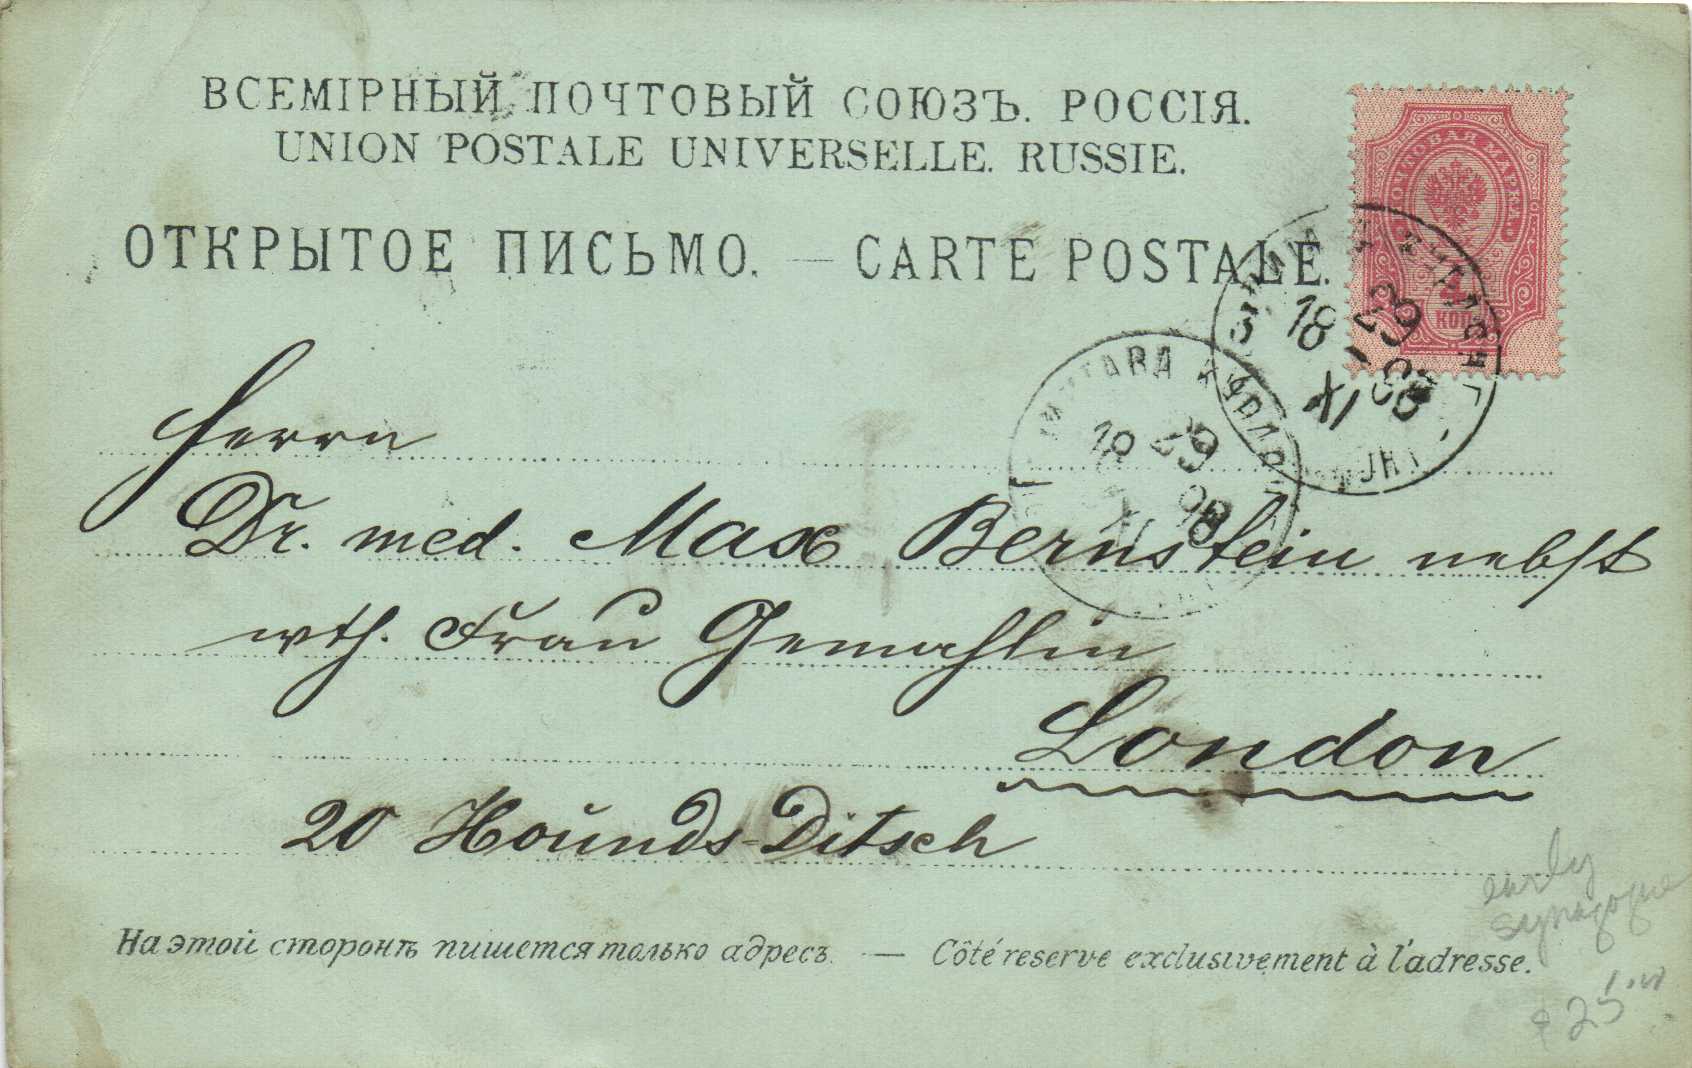 ВСЕМІРНЫЙ ПОЧТОВЫЙ СОЮЗЪ. РОССІЯ.
UNION POSTALE UNIVERSELLE. RUSSIE.
ОТКРЫТОЕ ПИСЬМО. — CARTE POSTALE.
ПОЧТОВАЯ МАРКА
4
КОП
3 18 29 XI 98
МИТАВА КУРЛ
18 29 XI 98
Herrn
Dr. med. Max Bernstein nebst
wth. Frau Gemahlin
London
20 Hounds-Ditsch
На этой сторонѣ пишется только адресъ. — Côté reserve exclusivement à l'adresse.
early
synagogue
$25.00